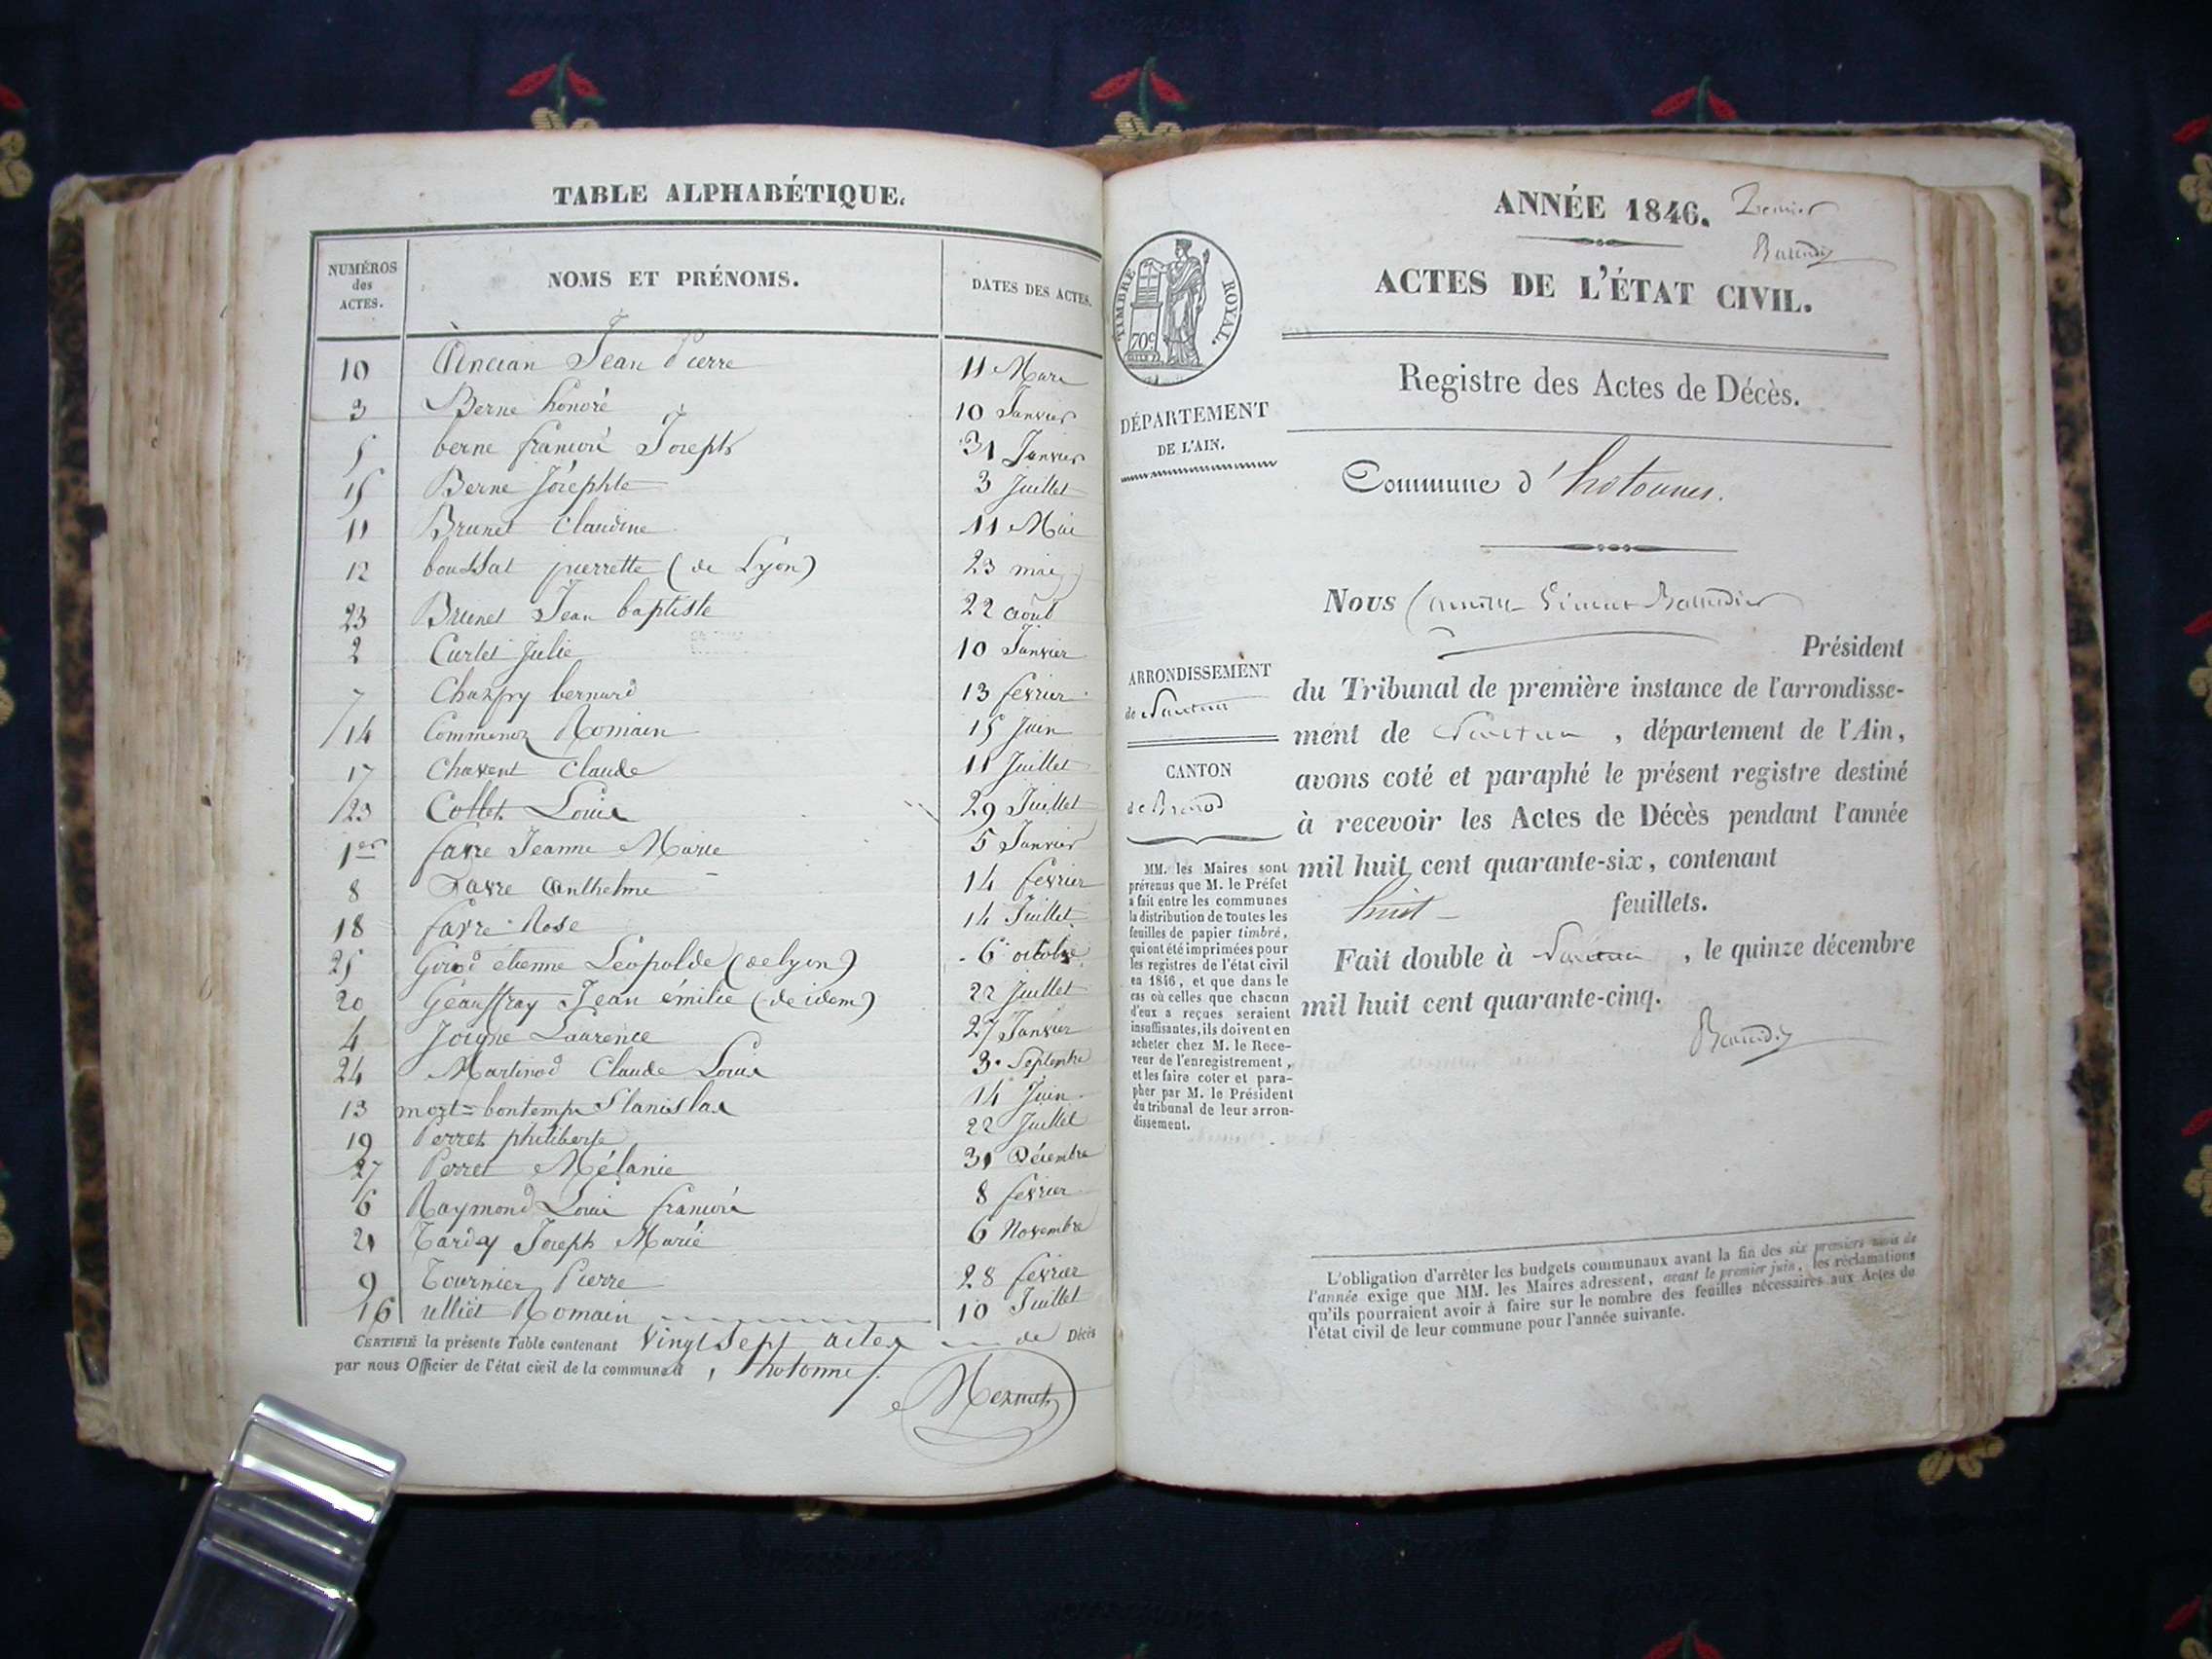 TABLE ALPHABÉTIQUE.
NUMÉROS des ACTES. NOMS ET PRÉNOMS. DATES DES ACTES.
10 Ancian Jean Pierre 11 Mars
3 Berne honoré 10 Janvier
5 berne francois Joseph 31 Janvier
15 Berne Josephte 3 Juillet
11 Brunet Claudine 11 Mai
12 boussat pierrette (de Lyon) 23 mai
23 Brunet Jean baptiste 22 août
2 Curlet Julie 10 Janvier
7 Chaspy bernard 13 fevrier
14 Commenoz Romain 15 Juin
17 Chavent Claude 11 Juillet
23 Collet Louis 29 Juillet
1er favre Jeanne Marie 5 Janvier
8 favre Anthelme 14 fevrier
18 favre Rose 14 Juillet
25 Girod étienne Léopolde (de lyon) 6 octobre
20 Geauffray Jean émilie (de idem) 22 Juillet
4 Joigne Laurence 27 Janvier
24 Martinod Claude Louis 3 Septembre
13 mort=bontemps Stanislas 14 Juin
19 Perret philiberte 22 Juillet
27 Perret Mélanie 31 Décembre
6 Raymond Louis francois 8 fevrier
21 Tardy Joseph Marie 6 Novembre
9 Tournier Pierre 28 fevrier
16 ulliet Romain 10 Juillet
CERTIFIÉ la présente Table contenant Vingt sept actes de Décès
par nous Officier de l'état civil de la commune d'hotonnes.
Mermet
ANNÉE 1846. Premier
ACTES DE L'ÉTAT CIVIL.
TIMBRE ROYAL.
70c
Registre des Actes de Décès.
DÉPARTEMENT
DE L'AIN.
Commune d'hotonnes.
Nous
Président
ARRONDISSEMENT
de Nantua
du Tribunal de première instance de l'arrondisse-
ment de Nantua, département de l'Ain,
CANTON
de Brenod
avons coté et paraphé le présent registre destiné
à recevoir les Actes de Décès pendant l'année
mil huit cent quarante-six, contenant
huit feuillets.
Fait double à Nantua, le quinze décembre
mil huit cent quarante-cinq.
MM. les Maires sont
prévenus que M. le Préfet
a fait entre les communes
la distribution de toutes les
feuilles de papier timbré,
qui ont été imprimées pour
les registres de l'état civil
en 1846, et que dans le
cas où celles que chacun
d'eux a reçues seraient
insuffisantes, ils doivent en
acheter chez M. le Rece-
veur de l'enregistrement,
et les faire coter et para-
pher par M. le Président
du tribunal de leur arron-
dissement.
L'obligation d'arrêter les budgets communaux avant la fin des six premiers mois de
l'année exige que MM. les Maires adressent, avant le premier juin, les réclamations
qu'ils pourraient avoir à faire sur le nombre des feuilles nécessaires aux Actes de
l'état civil de leur commune pour l'année suivante.